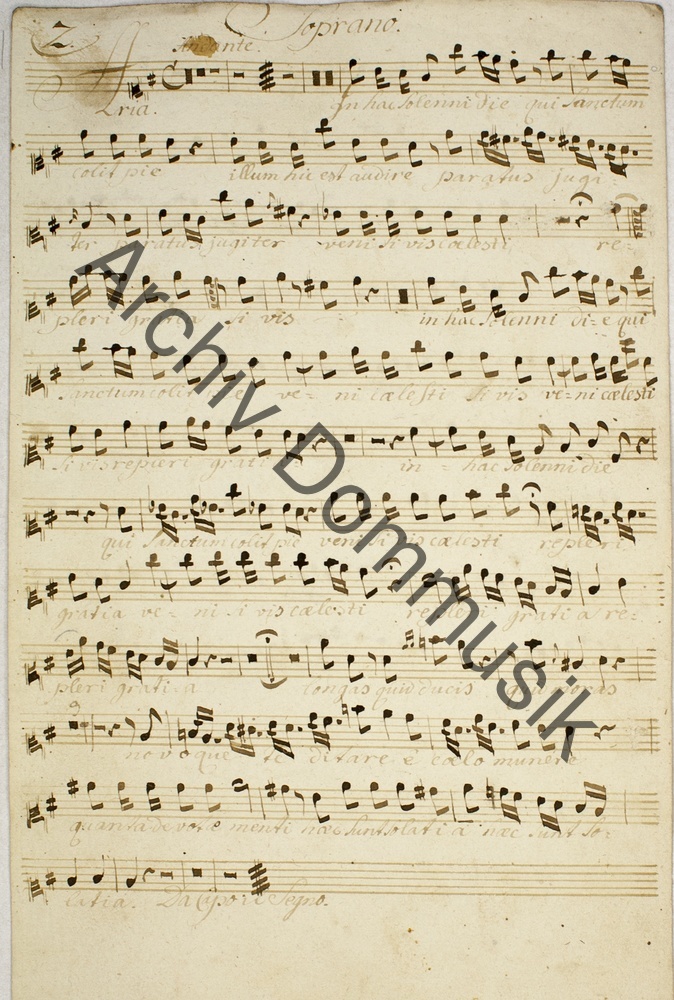 2. Soprano.
Andante.
Aria. In hac solenni die qui sanctum
colit pie illum hic est audire paratus jugi-
ter paratus jugiter veni si vis cœlesti re-
pleri gratia si vis in hac solenni di-e qui
sanctum colit ve-ni cœlesti si vis ve-ni cœlesti
si vis repleri grati- in-hac solenni die
qui sanctum colit pie veni si vis cœlesti repleri
gratia ve-ni si vis cœlesti repleri gratia re-
pleri gratia longas quid ducis moras
novoque te ditare è cœlo munere
quanta devotæ menti nœc sunt solatia nœc sunt so-
latia. Da Capo il Segno.
Archiv Dommusik